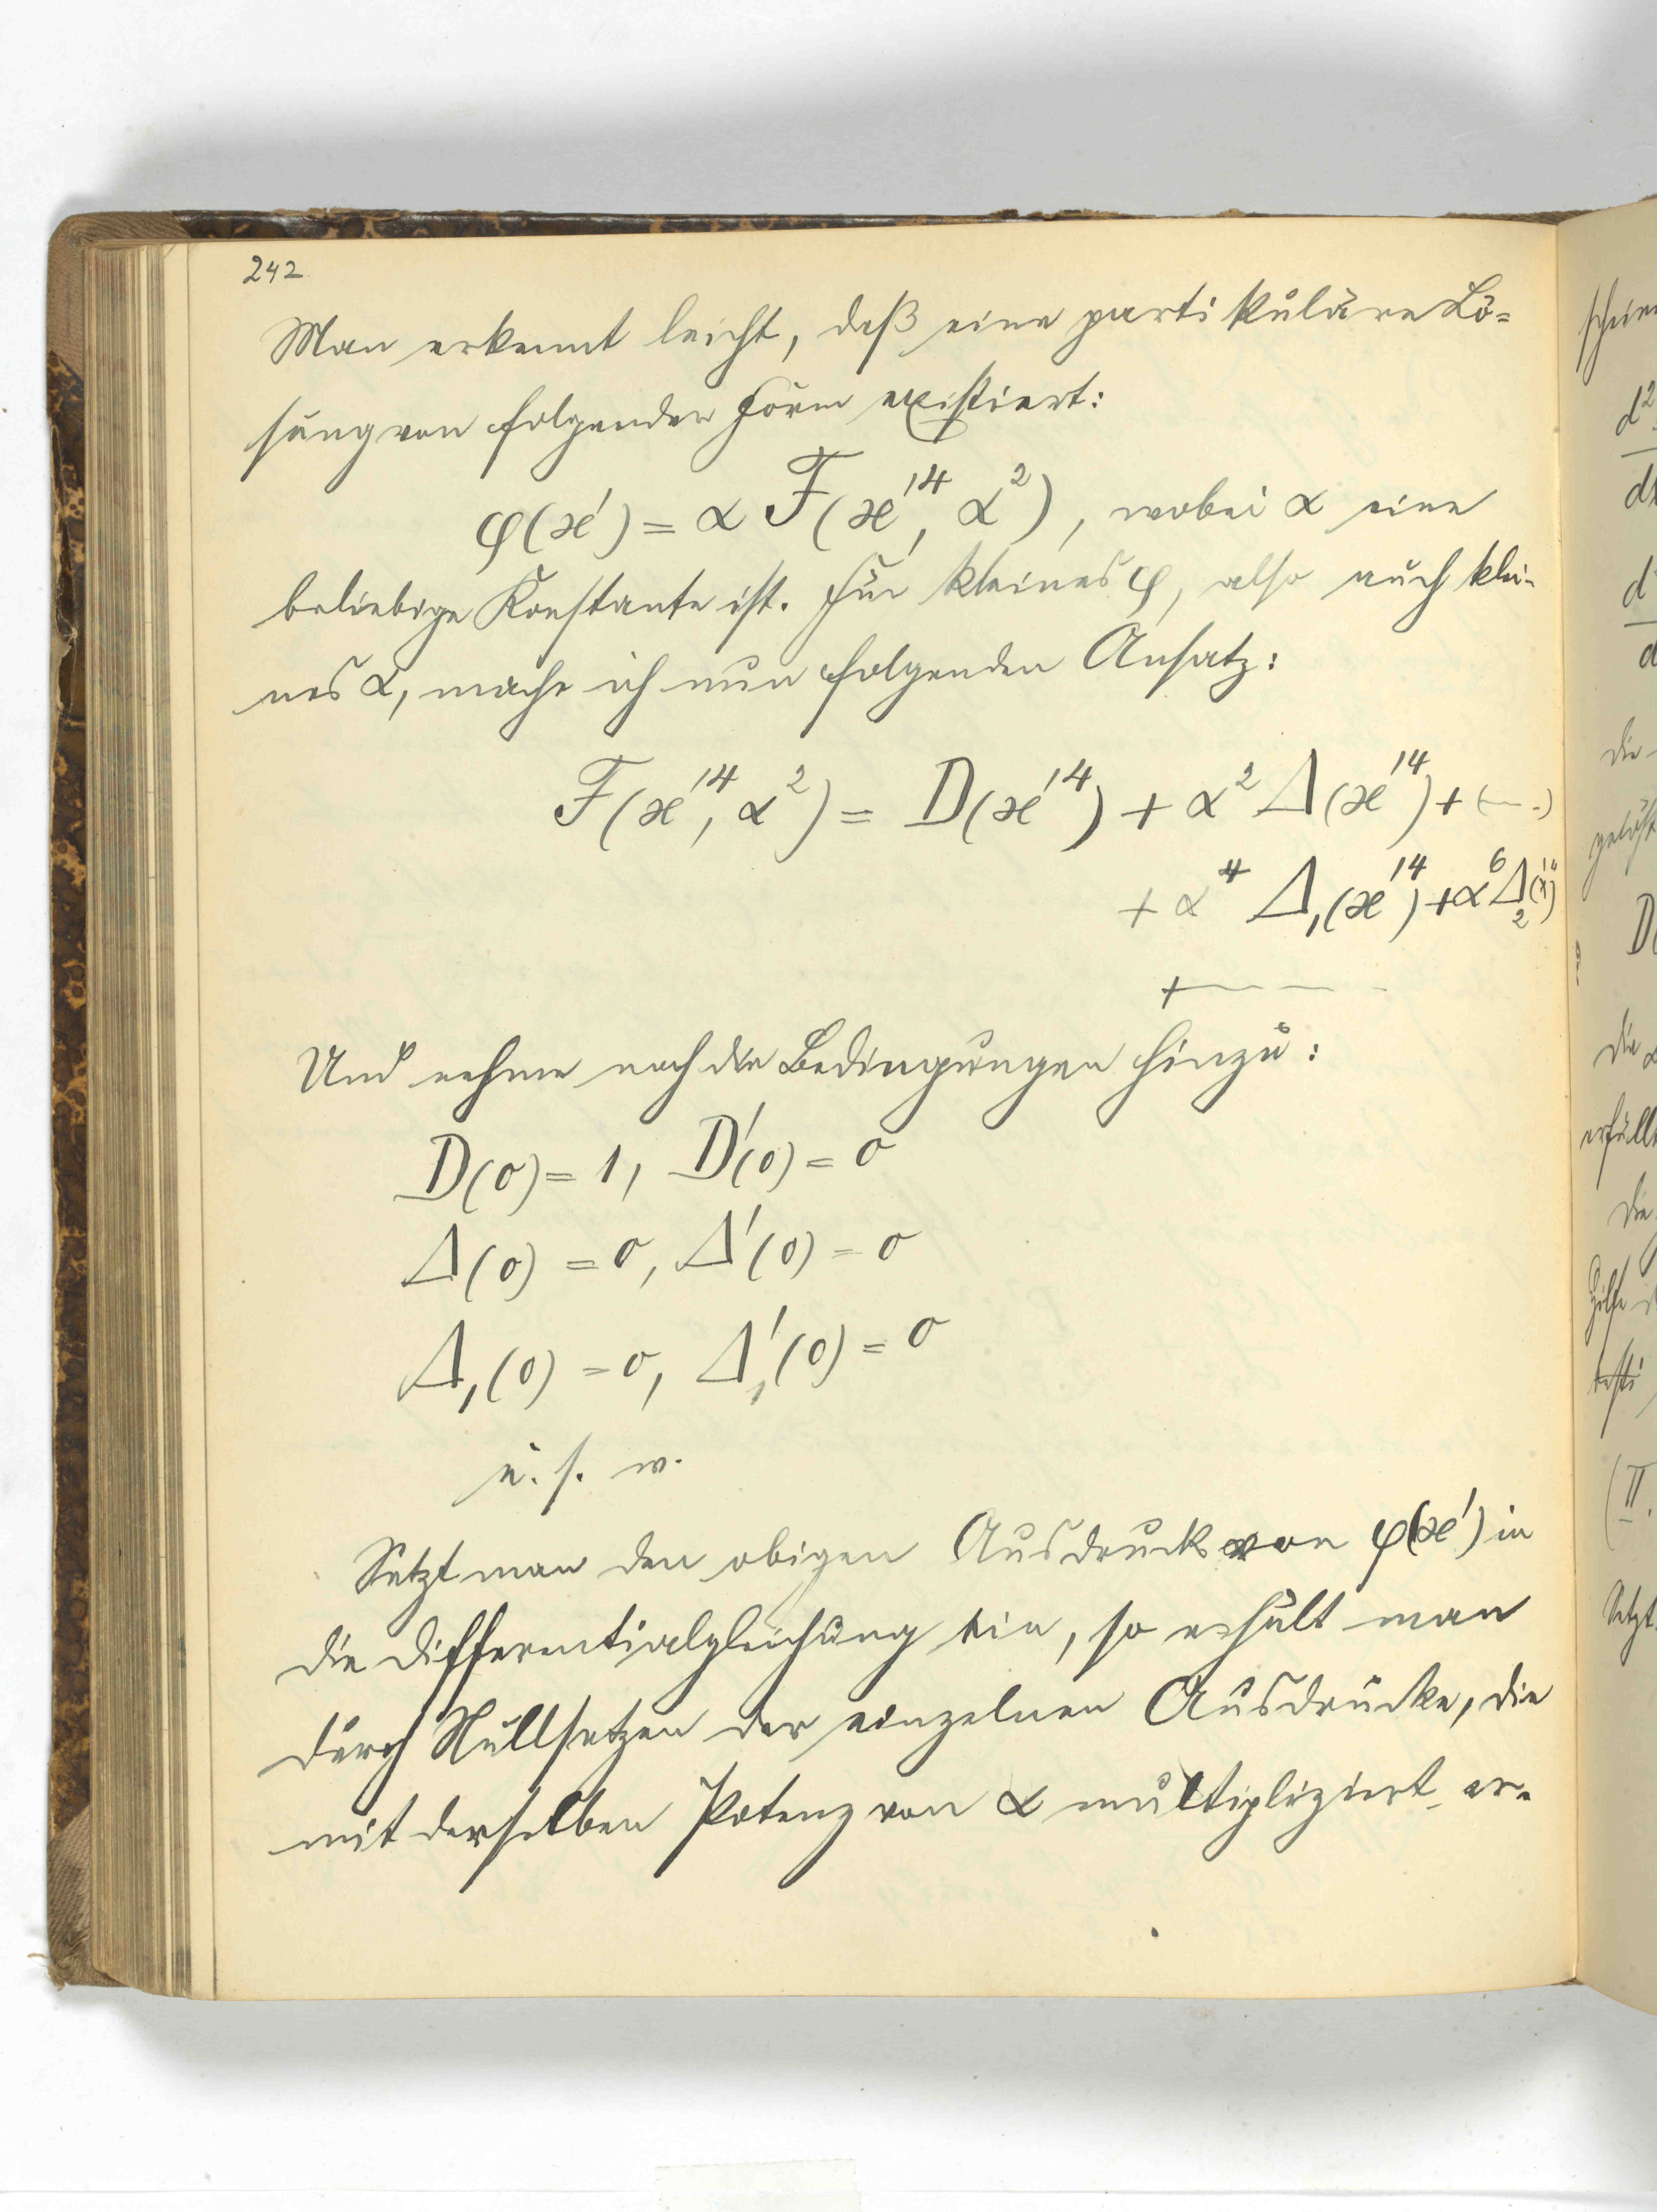 242
Man erkennt leicht, daß eine partikuläre Lö-
sung von folgender Form existiert:
φ(x') = α F(x'⁴, α²), wobei α eine
beliebige Konstante ist. Für kleines φ, also auch klei-
nes α, mache ich nun folgenden Ansatz:
F(x'⁴, α²) = D(x'⁴) + α² Δ(x'⁴) + (---)
+ α⁴ Δ₁(x'⁴) + α⁶ Δ₂(x'⁴)
+ - - - -
Und nehme noch die Bedingungen hinzu:
D(0) = 1, D'(0) = 0
Δ(0) = 0, Δ'(0) = 0
Δ₁(0) = 0, Δ₁'(0) = 0
u. s. w.
Setzt man den obigen Ausdruck von φ(x') in
die Differentialgleichung ein, so erhält man
durch Nullsetzen der einzelnen Ausdrücke, die
mit derselben Potenz von α multipliziert er-
schein
d²
d
die
gelöst
D(
die
erfüllt
die
Hilfe
(II.
Setzt